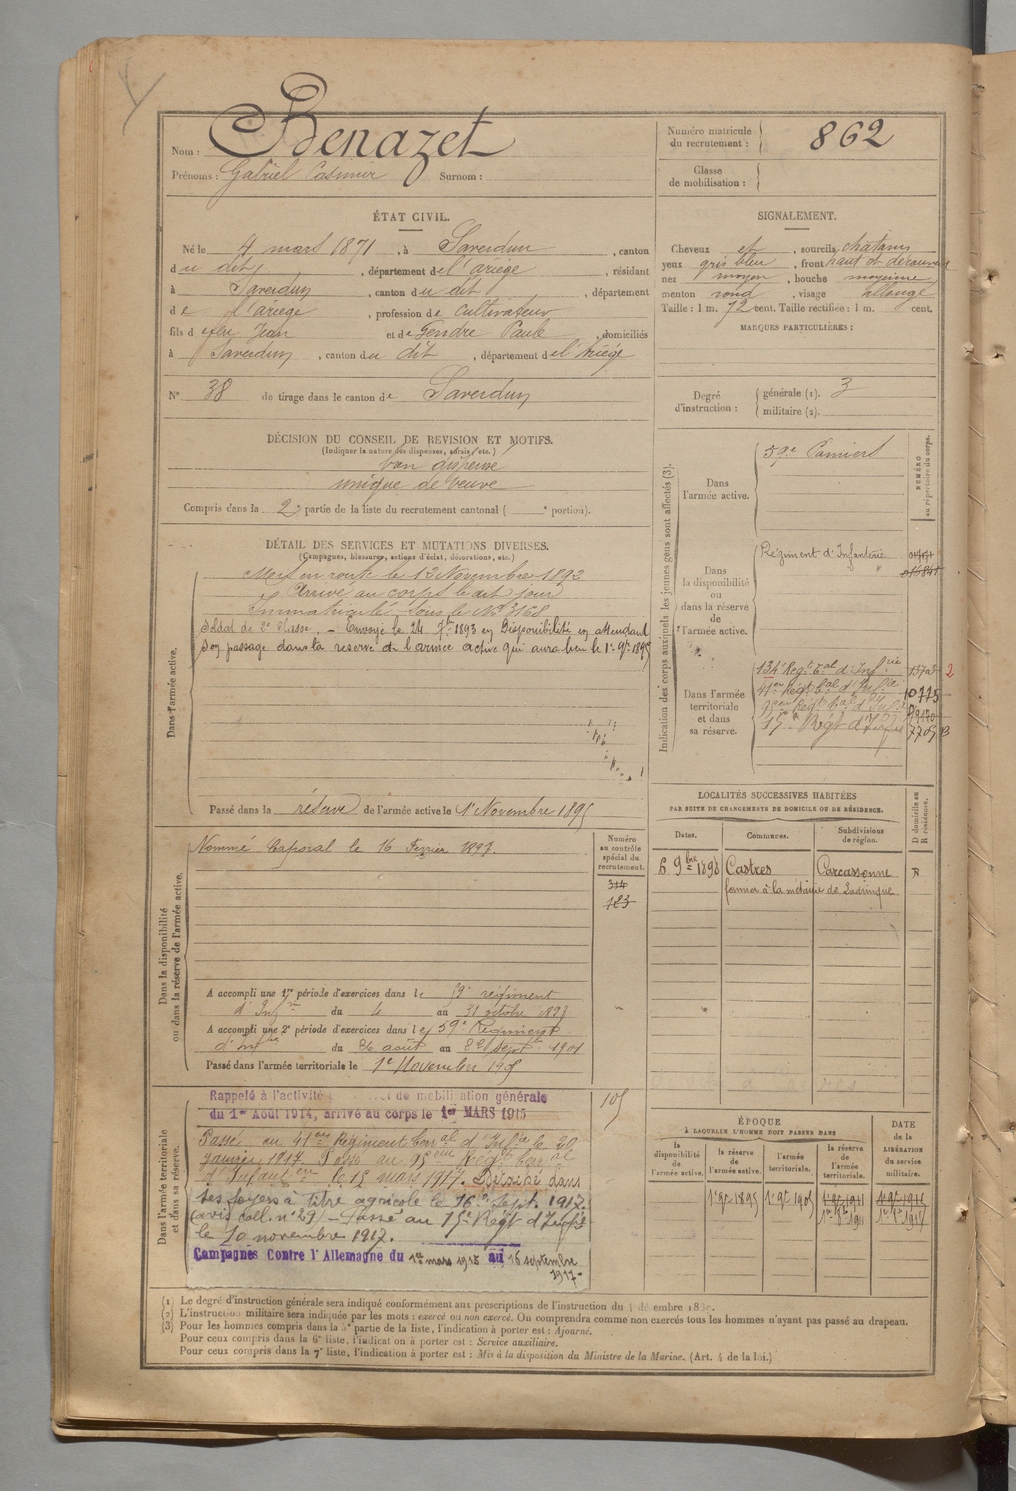 Nom : Benazet
Prénoms : Gabriel Casimir Surnom :
Numéro matricule du recrutement : 862
Classe de mobilisation :
ÉTAT CIVIL.
Né le 4 mars 1871, à Saverdun, canton
du dit, département de l'ariège, résidant
à Saverdun, canton du dit, département
de l'ariège, profession de cultivateur
fils de feu Jean et de Gendre Paule, domiciliés
à Saverdun, canton du dit, département de l'Ariège
N° 38 de tirage dans le canton de Saverdun
SIGNALEMENT.
Cheveux et, sourcils chatains
yeux gris bleu, front haut et découvert
nez moyen, bouche moyenne
menton rond, visage allongé
Taille : 1 m. 72 cent. Taille rectifiée : 1 m. cent.
MARQUES PARTICULIÈRES :
Degré d'instruction : générale (1). 3
militaire (2).
DÉCISION DU CONSEIL DE REVISION ET MOTIFS.
(Indiquer la nature des dispenses, sursis, etc.)
bon dispensé
unique de veuve
Compris dans la 2e partie de la liste du recrutement cantonal ( e portion).
DÉTAIL DES SERVICES ET MUTATIONS DIVERSES.
(Campagnes, blessures, actions d'éclat, décorations, etc.)
Dans l'armée active.
Mis en route le 12 Novembre 1892
Arrivé au corps le dit jour
Immatriculé sous le N° 3168
Soldat de 2e classe. – Envoyé le 24 7bre 1893 en Disponibilité en attendant
son passage dans la réserve de l'armée active qui aura lieu le 1er 9bre 1895
Passé dans la réserve de l'armée active le 1er Novembre 1895
Indication des corps auxquels les jeunes gens sont affectés (3).
NUMÉRO au répertoire du corps.
Dans l'armée active.
59e Pamiers
Dans la disponibilité ou dans la réserve de l'armée active.
Régiment d'Infanterie
Dans l'armée territoriale et dans sa réserve.
134e Régt Tal d'Infrie 2
41e Régt Tal d'Infie 10775
95e Régt Tal d'Infie
15e Régt d'Infie
LOCALITÉS SUCCESSIVES HABITÉES
PAR SUITE DE CHANGEMENTS DE DOMICILE OU DE RÉSIDENCE.
Dates. Communes. Subdivisions de région. D domicile ou R résidence.
6 9bre 1898 Castres Carcassonne R
fermier à la métairie de
Dans la disponibilité ou dans la réserve de l'armée active.
Nommé Caporal le 16 Février 1897.
Numéro au contrôle spécial du recrutement.
314
183
A accompli une 1re période d'exercices dans le 59e régiment
d'Infrie du 4 au 31 octobre 1897
A accompli une 2e période d'exercices dans le 59e Régiment
d'Infie du 26 août au 22 Sept 1901
Passé dans l'armée territoriale le 1er Novembre 1905
Dans l'armée territoriale et dans sa réserve.
105
Rappelé à l'activité de mobilisation générale
du 1er Août 1914, arrivé au corps le 1er MARS 1915
Passé au 41eme Régiment Terral d'Infie le 20
janvier 1917. Passé au 95eme Régt Terral
d'Infanterie le 15 mars 1917. Détaché dans
ses foyers à titre agricole le 16 Sept. 1917
(avis coll. n° 29) – Passé au 15e Régt d'Infie
le 10 novembre 1917.
Campagnes Contre l'Allemagne du 1er mars 1915 au 16 septembre
1917
ÉPOQUE
À LAQUELLE L'HOMME DOIT PASSER DANS
la disponibilité de l'armée active. la réserve de l'armée active. l'armée territoriale. la réserve de l'armée territoriale.
DATE de la LIBÉRATION du service militaire.
1er 9bre 1895 1er 9bre 1905 1er 9bre 1911
(1) Le degré d'instruction générale sera indiqué conformément aux prescriptions de l'instruction du décembre
(2) L'instruction militaire sera indiquée par les mots : exercé ou non exercé. On comprendra comme non exercés tous les hommes n'ayant pas passé au drapeau.
(3) Pour les hommes compris dans la 5e partie de la liste, l'indication à porter est : Ajourné.
Pour ceux compris dans la 6e liste, l'indication à porter est : Service auxiliaire.
Pour ceux compris dans la 7e liste, l'indication à porter est : Mis à la disposition du Ministre de la Marine. (Art. 4 de la loi.)